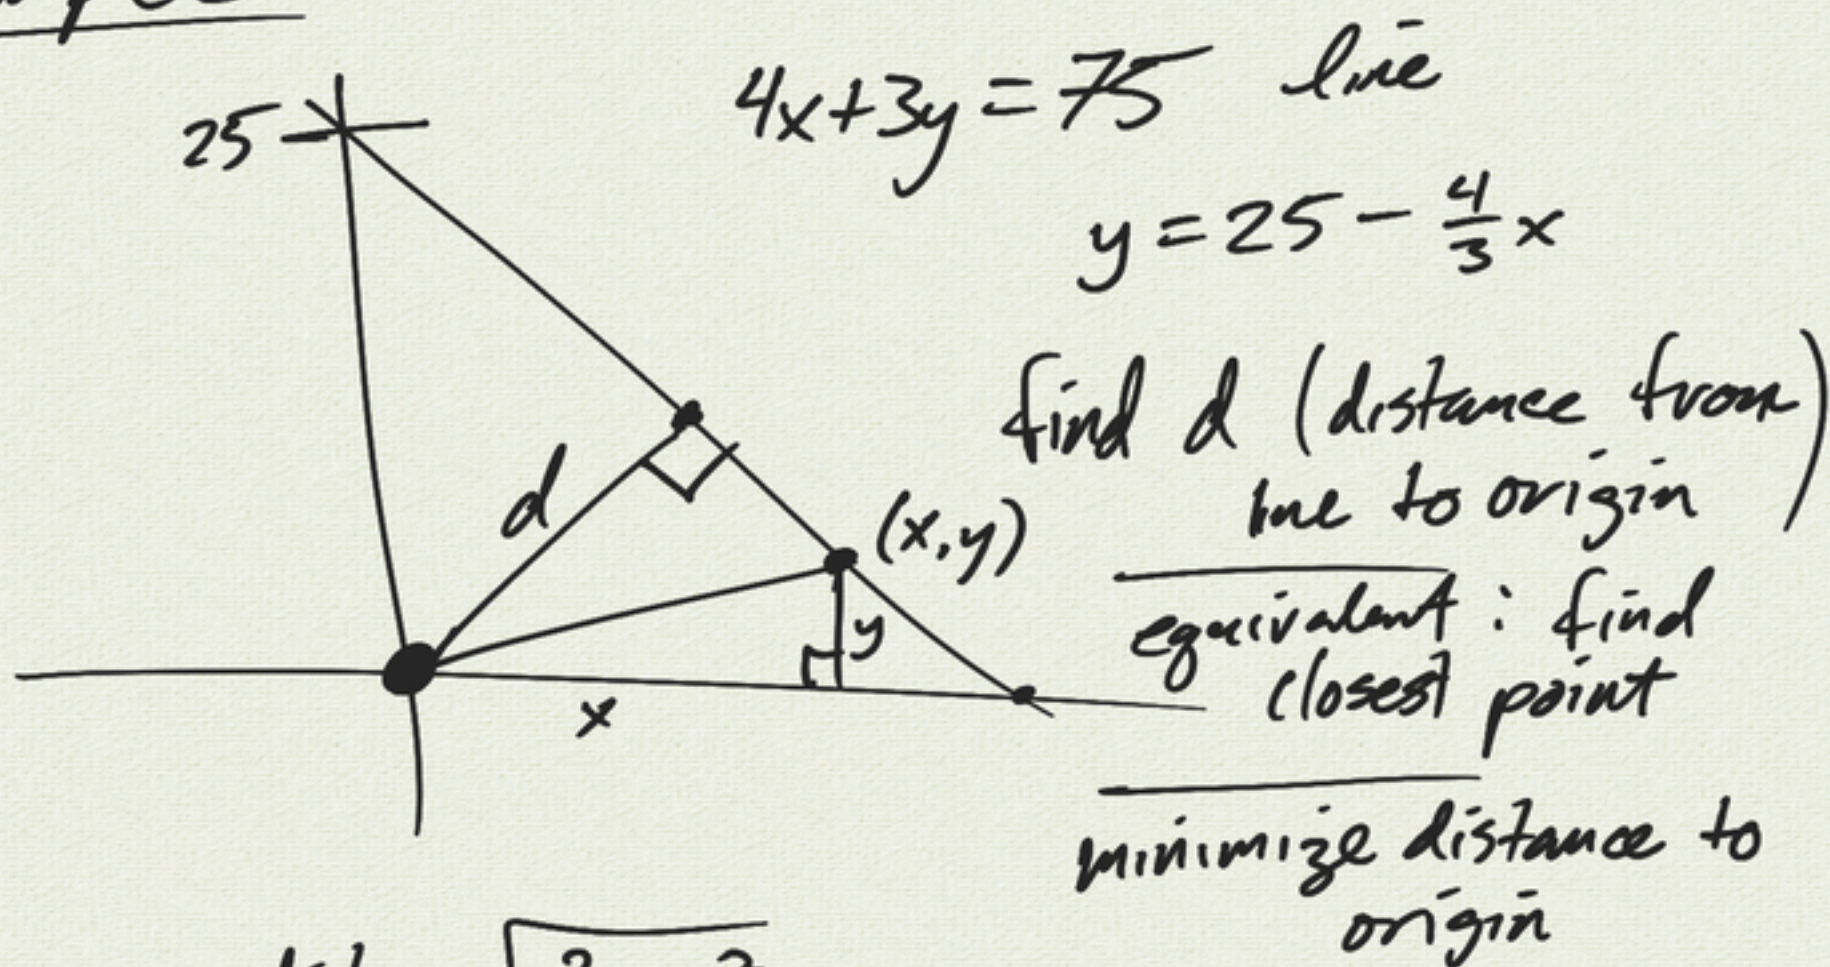 4x+3y=75 line
25
y = 25 - 4/3 x
find d (distance from
line to origin)
d
(x,y)
equivalent : find
y
closest point
x
minimize distance to
origin